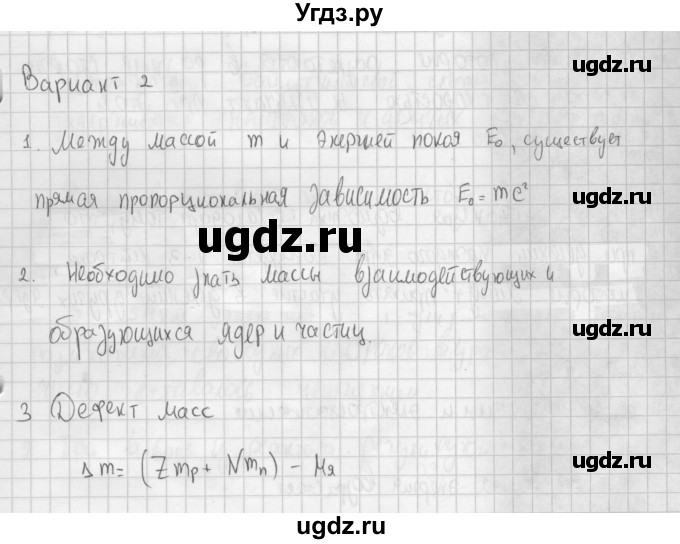 Угдз.ру
Вариант 2
ugdz.ru
1. Между массой m и энергией покоя E₀, существует
ugdz.ru
прямая пропорциональная зависимость E₀ = mc²
ugdz.ru
ugdz.ru
2. Необходимо знать массы взаимодействующих и
образующихся ядер и частиц.
ugdz.ru
3 Дефект масс
ugdz.ru
Δm = (Zmp + Nmn) - Mя
ugdz.ru
ugdz.ru